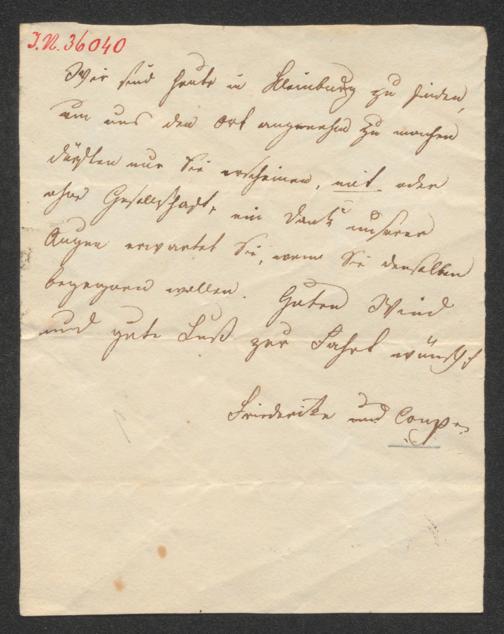 J.N. 36040
Wir sind heute in Kleinburg zu finden,
um uns den Ort angenehm zu machen
dürften nur Sie erscheinen, mit oder
ohne Gesellschaft, ein Dank unserer
Augen erwartet Sie, wenn Sie denselben
begegnen wollen. Guten Wind
und gute Lust zur Fahrt wünscht
Friederike und